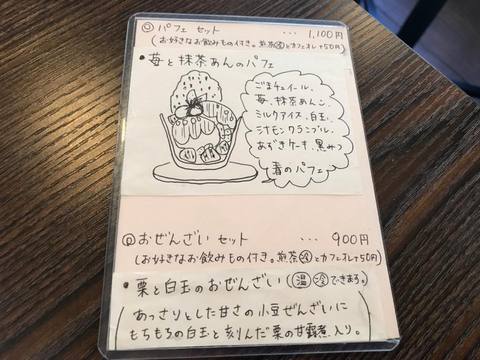 ◎ パフェ セット ･･･ 1,100円
(お好きなお飲みもの付き。煎茶冷とカフェオレ+50円)
• 苺と抹茶あんのパフェ
ごまチュイール、
苺、抹茶あん、
ミルクアイス、白玉、
シナモンクランブル、
あずきケーキ、黒みつ
春のパフェ
◎ おぜんざい セット ･･･ 900円
(お好きなお飲みもの付き。煎茶冷とカフェオレ+50円)
• 栗と白玉のおぜんざい (温 冷 できます。)
あっさりとした甘さの小豆ぜんざいに
もちもちの白玉と刻んだ栗の甘露煮入り。